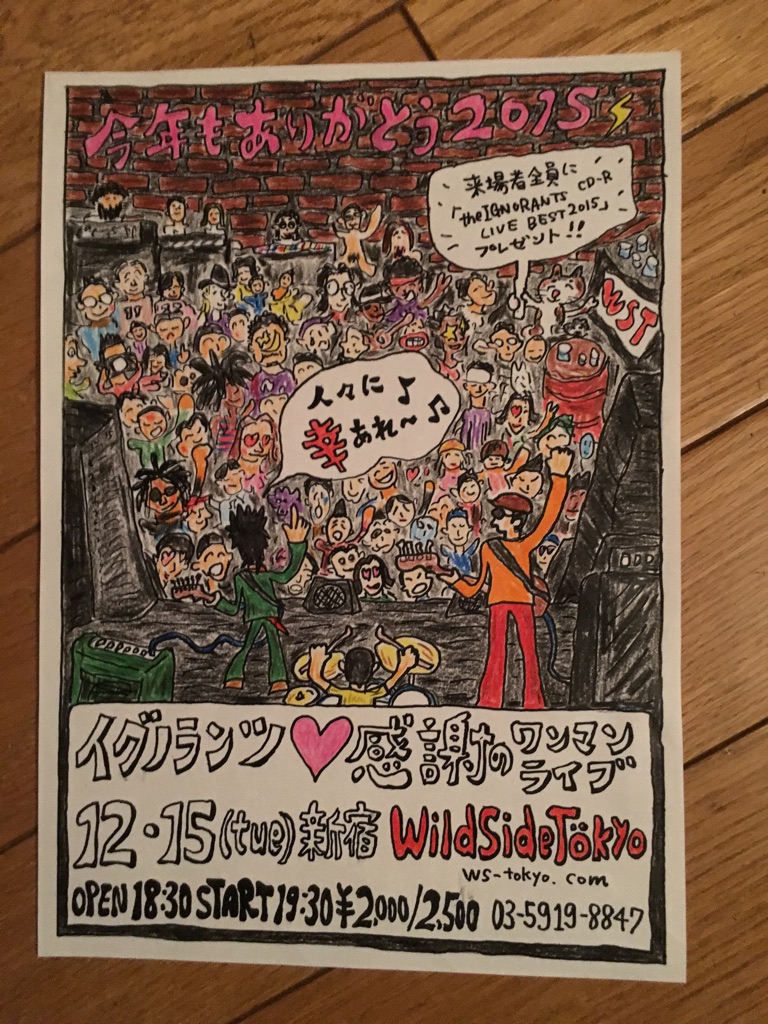 今年もありがとう2015
来場者全員に
「theIGNORANTS CD-R
LIVE BEST 2015」
プレゼント!!
WST
人々に♪
幸あれ〜♫
イグノランツ♥感謝のワンマン
ライブ
12・15(tue)新宿 WildSideTökyo
ws-tokyo.com
OPEN 18:30 START 19:30 ¥2,000/2,500 03-5919-8847